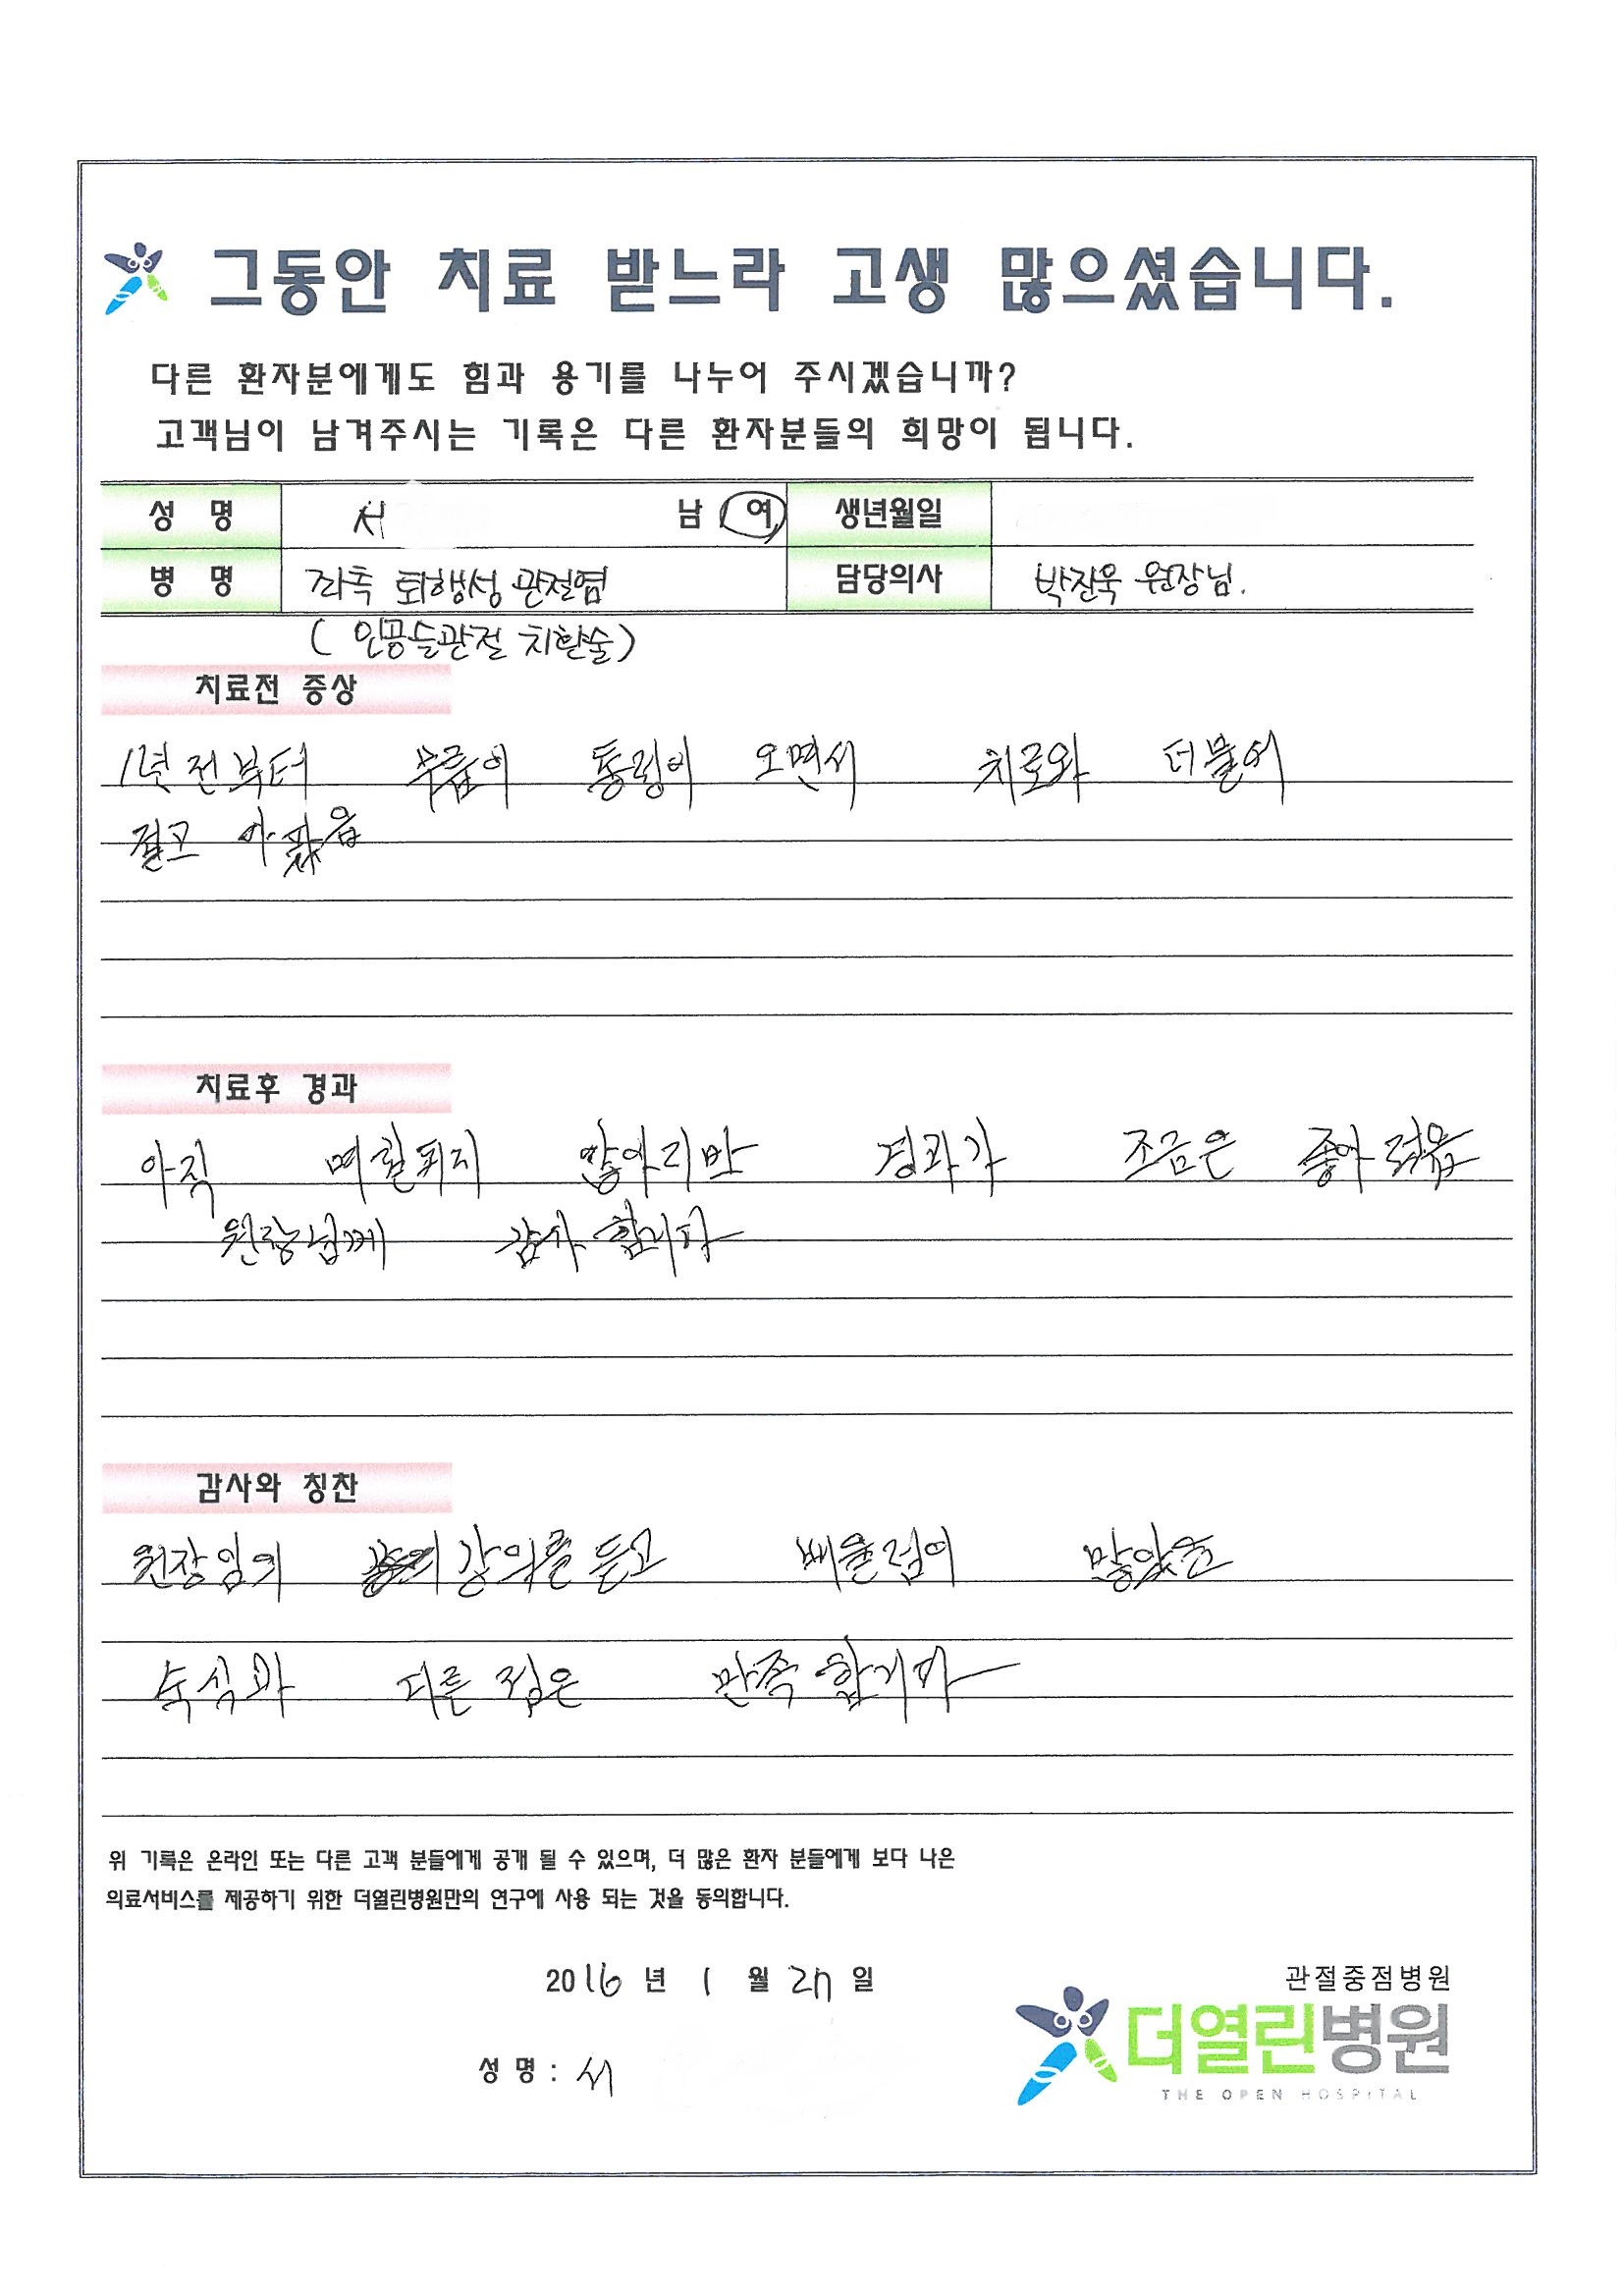 그동안 치료 받느라 고생 많으셨습니다.
다른 환자분에게도 힘과 용기를 나누어 주시겠습니까?
고객님이 남겨주시는 기록은 다른 환자분들의 희망이 됩니다.
성 명 서 남 여 생년월일
병 명 좌측 퇴행성 관절염 담당의사 박진욱 원장님.
(인공슬관절 치환술)
치료전 증상
1년 전부터 무릎에 통징이 오면서 치료와 더불어
절고 아팠음
치료후 경과
아직 며칠되지 않아리만 경과가 조금은 좋아 졌음
원장님께 감사 합니다
감사와 칭찬
원장임의 강의를 듣고 배울점이 많았음
숙식과 다른 점은 만족 합니다
위 기록은 온라인 또는 다른 고객 분들에게 공개 될 수 있으며, 더 많은 환자 분들에게 보다 나은
의료서비스를 제공하기 위한 더열린병원만의 연구에 사용 되는 것을 동의합니다.
2016 년 1 월 27 일
관절중점병원
더열린병원
THE OPEN HOSPITAL
성 명 : 서